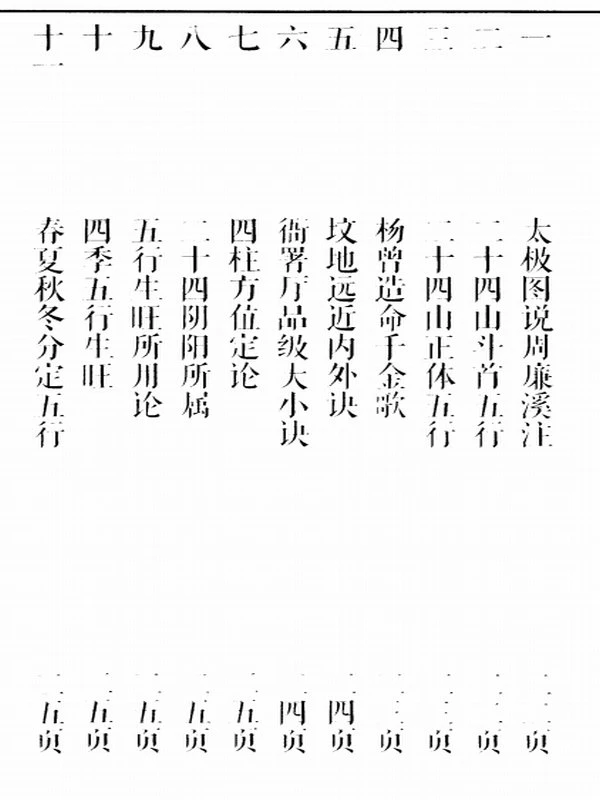 一 太极图说周廉溪注 页
二 二十四山斗首五行 页
三 二十四山正体五行 页
四 杨曾造命千金歌 页
五 坟地远近内外诀 四页
六 衙署厅品级大小诀 四页
七 四柱方值定论 五页
八 二十四阴阳所属 五页
九 五行生旺所用论 五页
十 四季五行生旺 五页
十一 春夏秋冬分定五行 五页